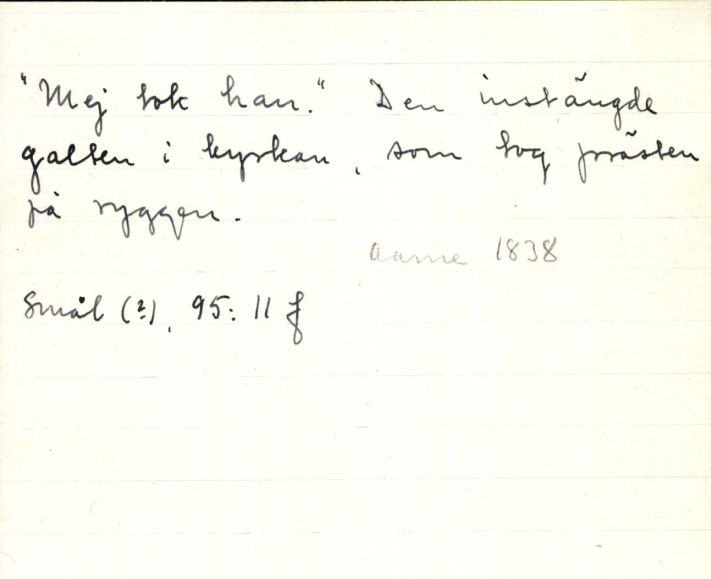 "Mej tok han." Den instängde
galten i kyrkan, som tog prästen
på ryggen.
Aarne 1838
Smål (?), 95: 11 f